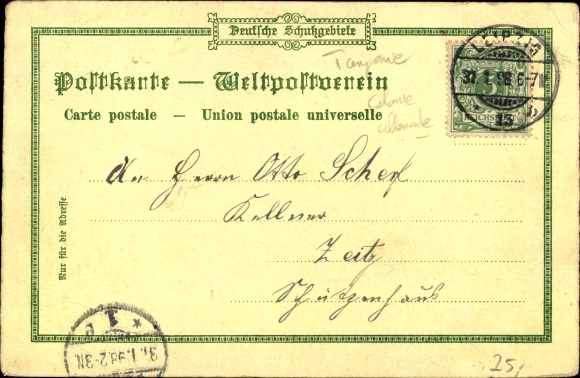 Deutsche Schutzgebiete
Postkarte — Weltpostverein
Carte postale — Union postale universelle
LEIPZIG
31 1.98.6-7N
13
5
REICHSPOST
An Herrn Otto
Kellner
Zeitz
Schützenhaus
Nur für die Adresse
31.1.98.2-3N
25,